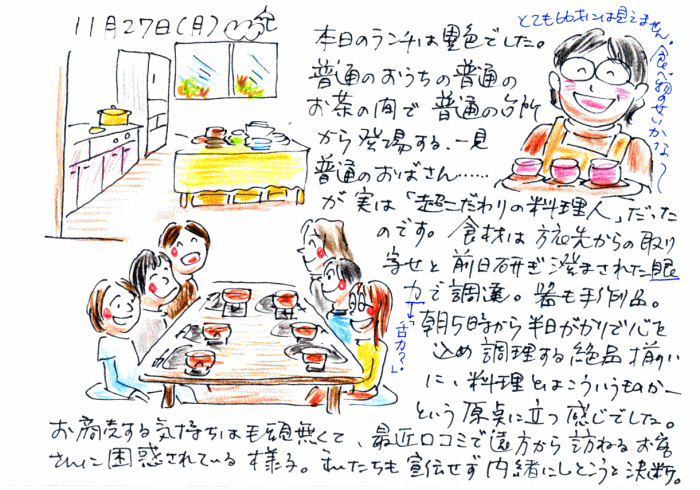 11月27日(月)
とても66才には見えません。食べ物のせいかな〜
本日のランチは異色でした。
普通のおうちの普通の
お茶の間で 普通の台所
から登場する、一見
普通のおばさん……
が実は「超こだわりの料理人」だった
のです。食材は方々からの取り
寄せと前日研ぎ澄まされた眼
力で調達。器も手作品。
「舌力?」
朝5時から半日がかりで心を
込め調理する絶品揃い
に、料理とはこういうものか〜
という原点に立つ感じでした。
お商売する気持ちは毛頭無くて、最近口コミで遠方から訪ねるお客
さんに困惑されている様子。私たちも宣伝せず内緒にしとこうと決断。